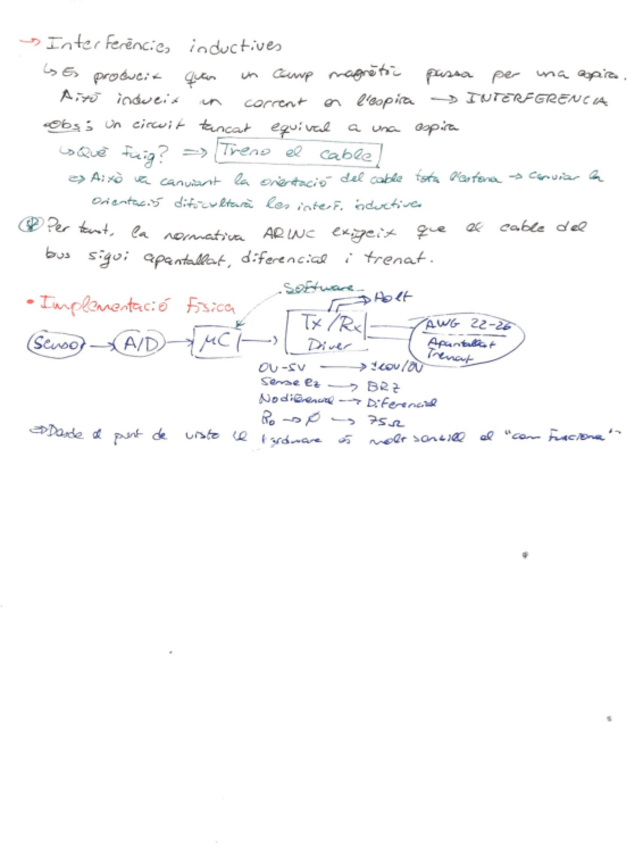 → Interferències inductives
↳ Es produeix quan un camp magnètic passa per una espira.
Això indueix un corrent en l'espira → INTERFERENCIA
Obs: Un circuit tancat equival a una espira
↳ Què faig? ⇒ Treno el cable
⇒ Això va canviant la orientació del cable tota l'estona → Canviar la
orientació dificultarà les interf. inductives
Per tant, la normativa ARINC exigeix que el cable del
bus sigui apantallat, diferencial i trenat.
Software
• Implementació Física
Holt
Sensor → A/D → μC → Tx/Rx Diver
AWG 22-26
Apantallat
Trenat
0V-5V →
Sense Rz → BRZ
No diferencial → Diferencial
Ro → Ø → 75Ω
⇒ Desde el punt de vista el hardware és molt senzill el "com funciona"